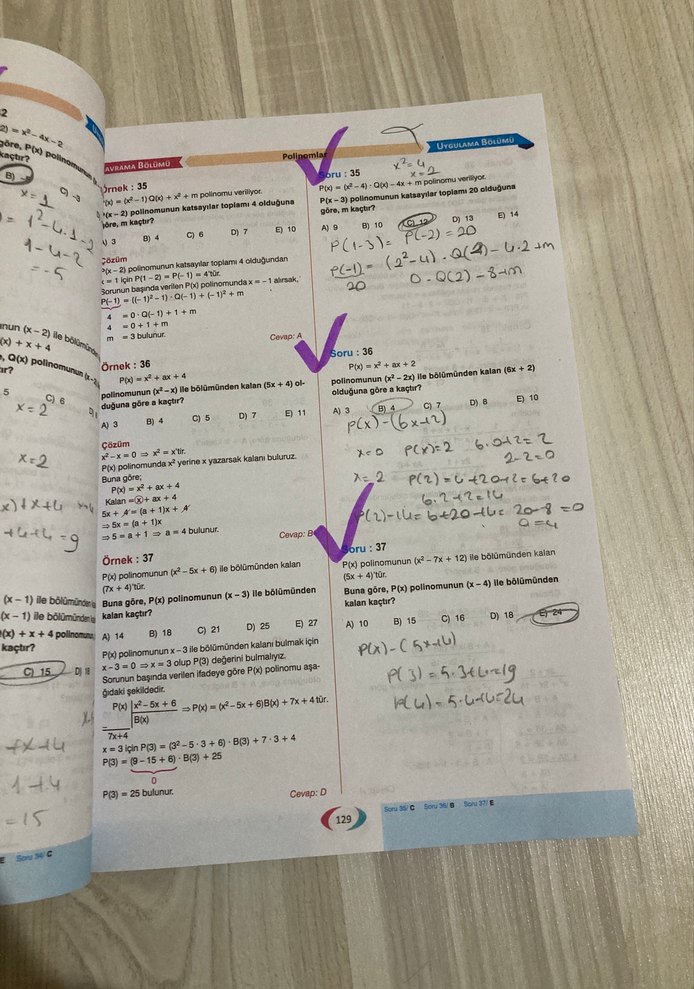 2) = x² – 4x – 2
göre, P(x) polinomunun
kaçtır?
B)
C) –3
x = 1
1² – 4.1 – 2
1 – 4 – 2
= –5
nun (x – 2) ile bölümünden
(x) + x + 4
C) 6
x = 2
x = 2
+4+4 = 9
(x – 1) ile bölümünden
(x – 1) ile bölümünden
(x) + x + 4 polinomunu
kaçtır?
C) 15
D) 18
+x+4
1+4
= 15
E Soru 34/ C
AVRAMA BÖLÜMÜ
Polinomlar
UYGULAMA BÖLÜMÜ
Örnek : 35
P(x) = (x² – 1) Q(x) + x² + m polinomu veriliyor.
P(x – 2) polinomunun katsayılar toplamı 4 olduğuna
göre, m kaçtır?
A) 3 B) 4 C) 6 D) 7 E) 10
Çözüm
P(x – 2) polinomunun katsayılar toplamı 4 olduğundan
x = 1 için P(1 – 2) = P(–1) = 4'tür.
Sorunun başında verilen P(x) polinomunda x = –1 alırsak,
P(–1) = ((–1)² – 1) · Q(–1) + (–1)² + m
4 = 0 · Q(–1) + 1 + m
4 = 0 + 1 + m
m = 3 bulunur.
Cevap: A
Örnek : 36
P(x) = x² + ax + 4
polinomunun (x² – x) ile bölümünden kalan (5x + 4) ol-
duğuna göre a kaçtır?
A) 3 B) 4 C) 5 D) 7 E) 11
Çözüm
x² – x = 0 ⇒ x² = x'tir.
P(x) polinomunda x² yerine x yazarsak kalanı buluruz.
Buna göre;
P(x) = x² + ax + 4
Kalan = x + ax + 4
5x + 4 = (a + 1)x + 4
⇒ 5x = (a + 1)x
⇒ 5 = a + 1 ⇒ a = 4 bulunur.
Cevap: B
Örnek : 37
P(x) polinomunun (x² – 5x + 6) ile bölümünden kalan
(7x + 4)'tür.
Buna göre, P(x) polinomunun (x – 3) ile bölümünden
kalan kaçtır?
A) 14 B) 18 C) 21 D) 25 E) 27
P(x) polinomunun x – 3 ile bölümünden kalanı bulmak için
x – 3 = 0 ⇒ x = 3 olup P(3) değerini bulmalıyız.
Sorunun başında verilen ifadeye göre P(x) polinomu aşa-
ğıdaki şekildedir.
P(x) x² – 5x + 6 ⇒ P(x) = (x² – 5x + 6) B(x) + 7x + 4 tür.
B(x)
7x+4
x = 3 için P(3) = (3² – 5 · 3 + 6) · B(3) + 7 · 3 + 4
P(3) = (9 – 15 + 6) · B(3) + 25
0
P(3) = 25 bulunur.
Cevap: D
x² = 4
x = 2
Soru : 35
P(x) = (x² – 4) · Q(x) – 4x + m polinomu veriliyor.
P(x – 3) polinomunun katsayılar toplamı 20 olduğuna
göre, m kaçtır?
A) 9 B) 10 C) 12 D) 13 E) 14
P(1-3) = P(-2) = 20
P(-1) = (2²-4) . Q(2) - 4.2 + m
20 0 . Q(2) - 8 + m
Soru : 36
P(x) = x² + ax + 2
polinomunun (x² – 2x) ile bölümünden kalan (6x + 2)
olduğuna göre a kaçtır?
A) 3 B) 4 C) 7 D) 8 E) 10
P(x) - (6x+2)
x = 0 P(x) = 2 6.0+2 = 2
2-2 = 0
x = 2 P(2) = 4+2a+2 = 6+2a
6.2+2 = 14
P(2)-14 = 6+2a-14 = 2a-8 = 0
a = 4
Soru : 37
P(x) polinomunun (x² – 7x + 12) ile bölümünden kalan
(5x + 4)'tür.
Buna göre, P(x) polinomunun (x – 4) ile bölümünden
kalan kaçtır?
A) 10 B) 15 C) 16 D) 18 E) 24
P(x) - (5x+4)
P(3) = 5.3+4 = 19
P(4) = 5.4+4 = 24
129
Soru 35/ C Soru 36/ B Soru 37/ E